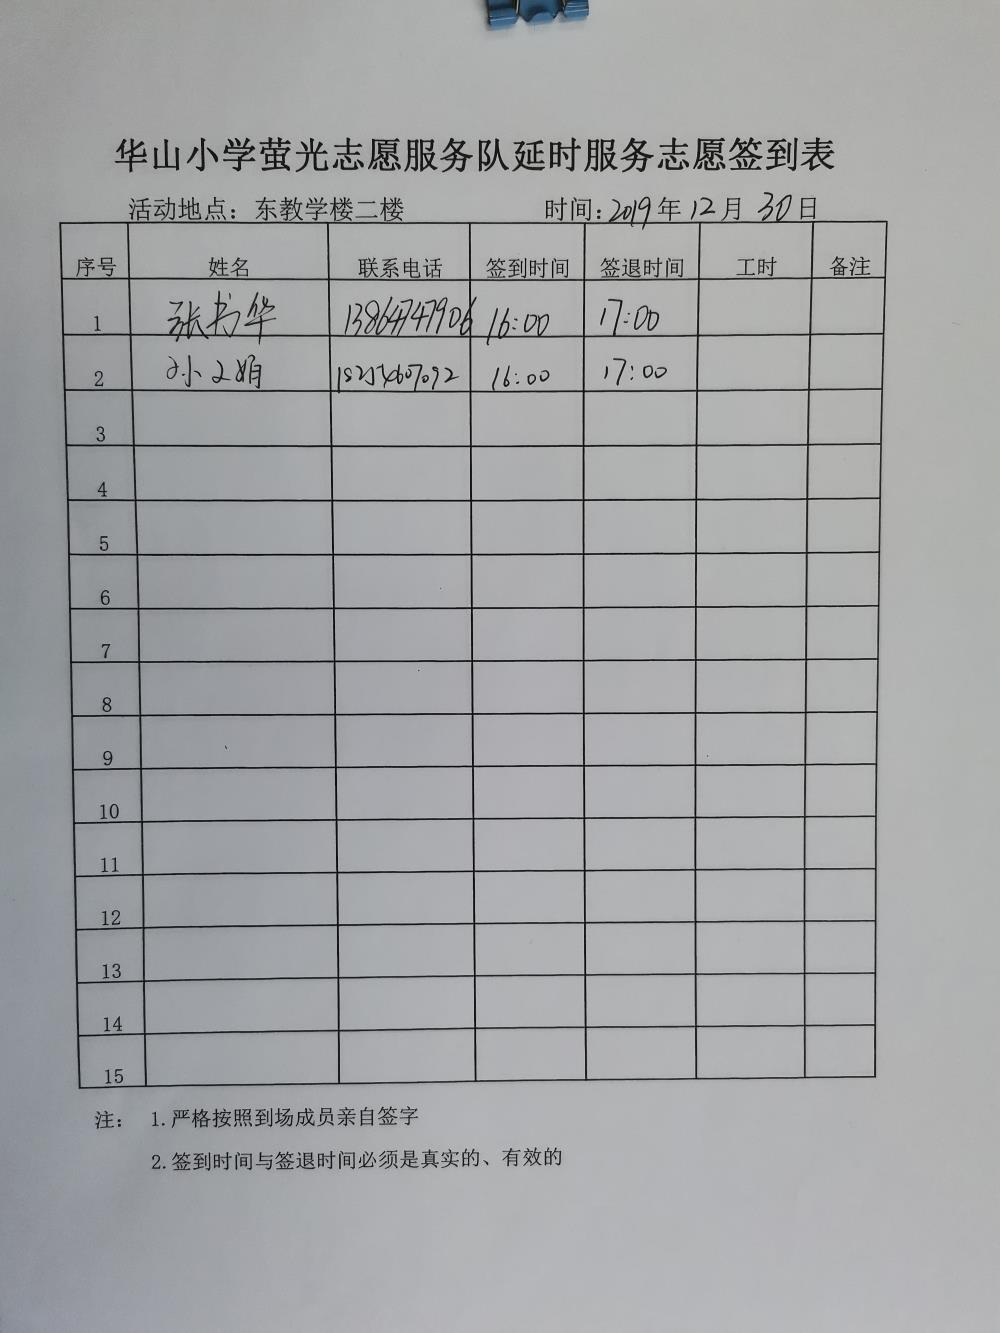 华山小学萤光志愿服务队延时服务志愿签到表
活动地点：东教学楼二楼 时间：2019年12月30日
序号 姓名 联系电话 签到时间 签退时间 工时 备注
1 张书华 13864747906 16:00 17:00
2 孙文娟 16:00 17:00
3
4
5
6
7
8
9
10
11
12
13
14
15
注： 1.严格按照到场成员亲自签字
2.签到时间与签退时间必须是真实的、有效的